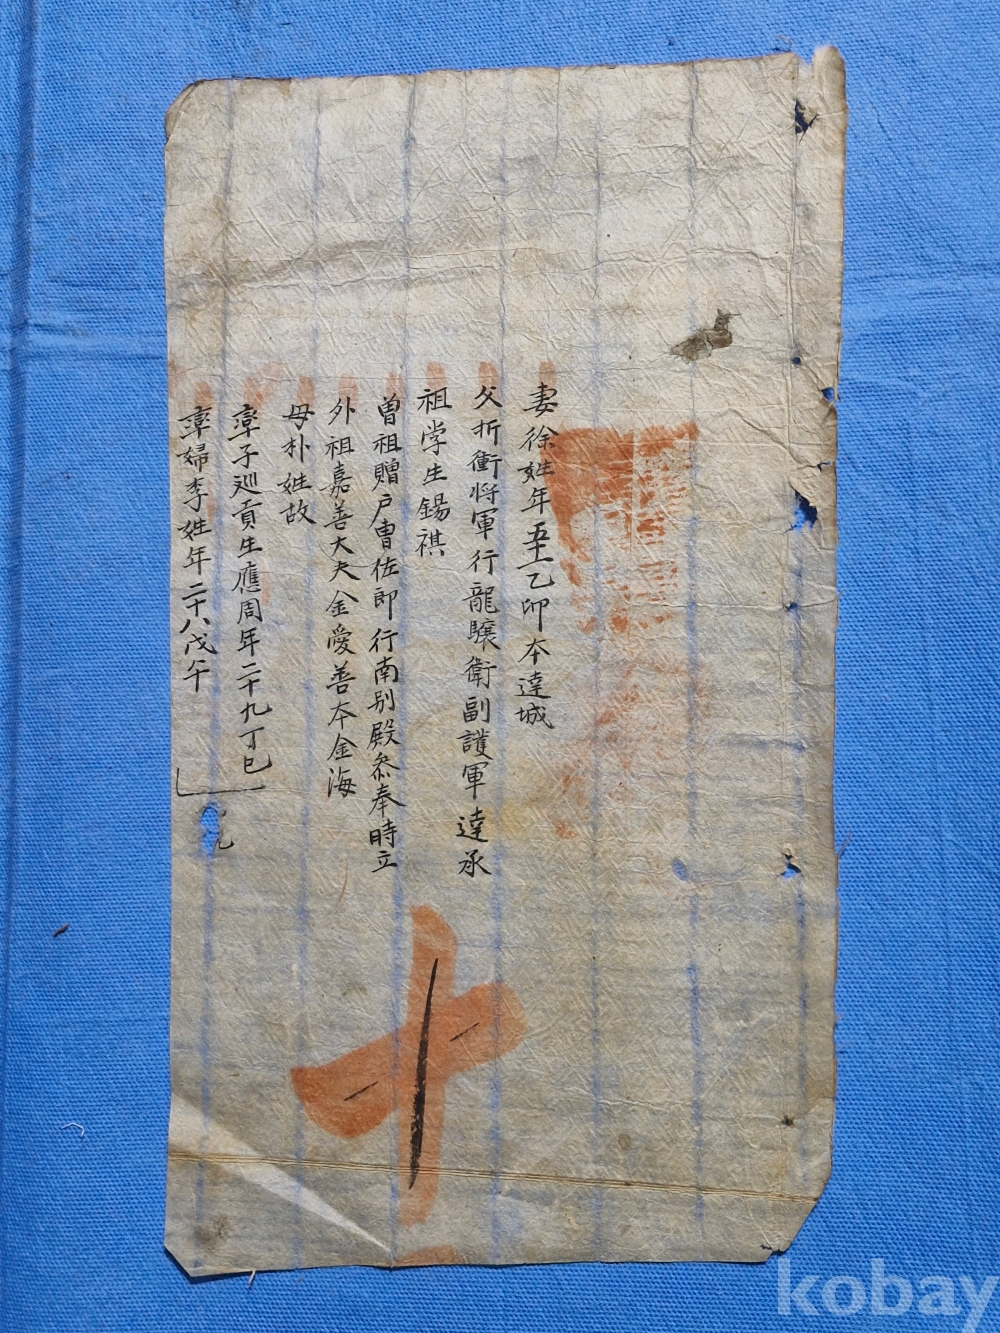 妻徐姓年五十一乙卯本達城
父折衝將軍行龍驤衛副護軍達承
祖学生錫祺
曽祖贈戶曺佐郎行南别殿叅奉時立
外祖嘉善大夫金愛善本金海
母朴姓故
率子廵貢生應周年二十九丁巳
率婦李姓年二十八戊午
kobay